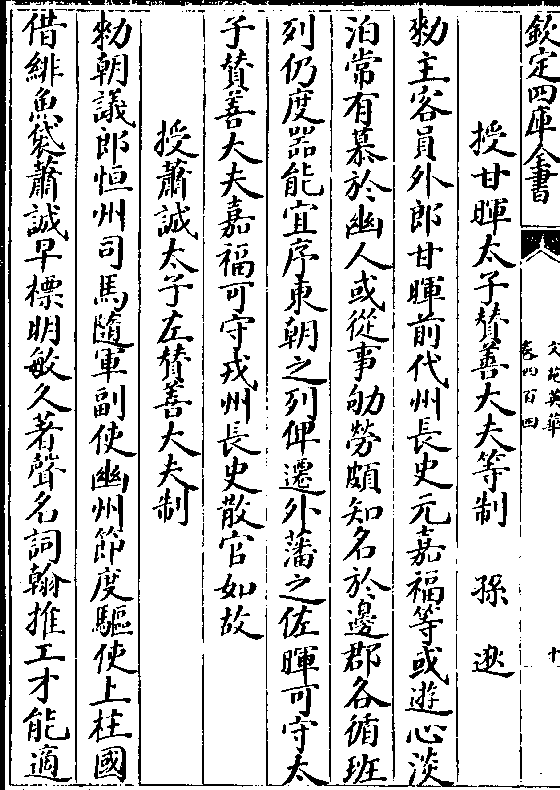 欽定四庫全書
文苑英華
卷四百四
十
授甘暉太子賛善大夫等制 孫逖
勑主客員外郎甘暉前代州長史元嘉福等或遊心淡
泊常有慕於幽人或從事劬勞頗知名於邊郡各循班
列仍度器能宜序東朝之列俾遷外藩之佐暉可守太
子賛善大夫嘉福可守戎州長史散官如故
授蕭誠太子左賛善大夫制
勑朝議郎恒州司馬隨軍副使幽州節度驅使上柱國
借緋魚袋蕭誠早標明敏久著聲名詞翰推工才能適